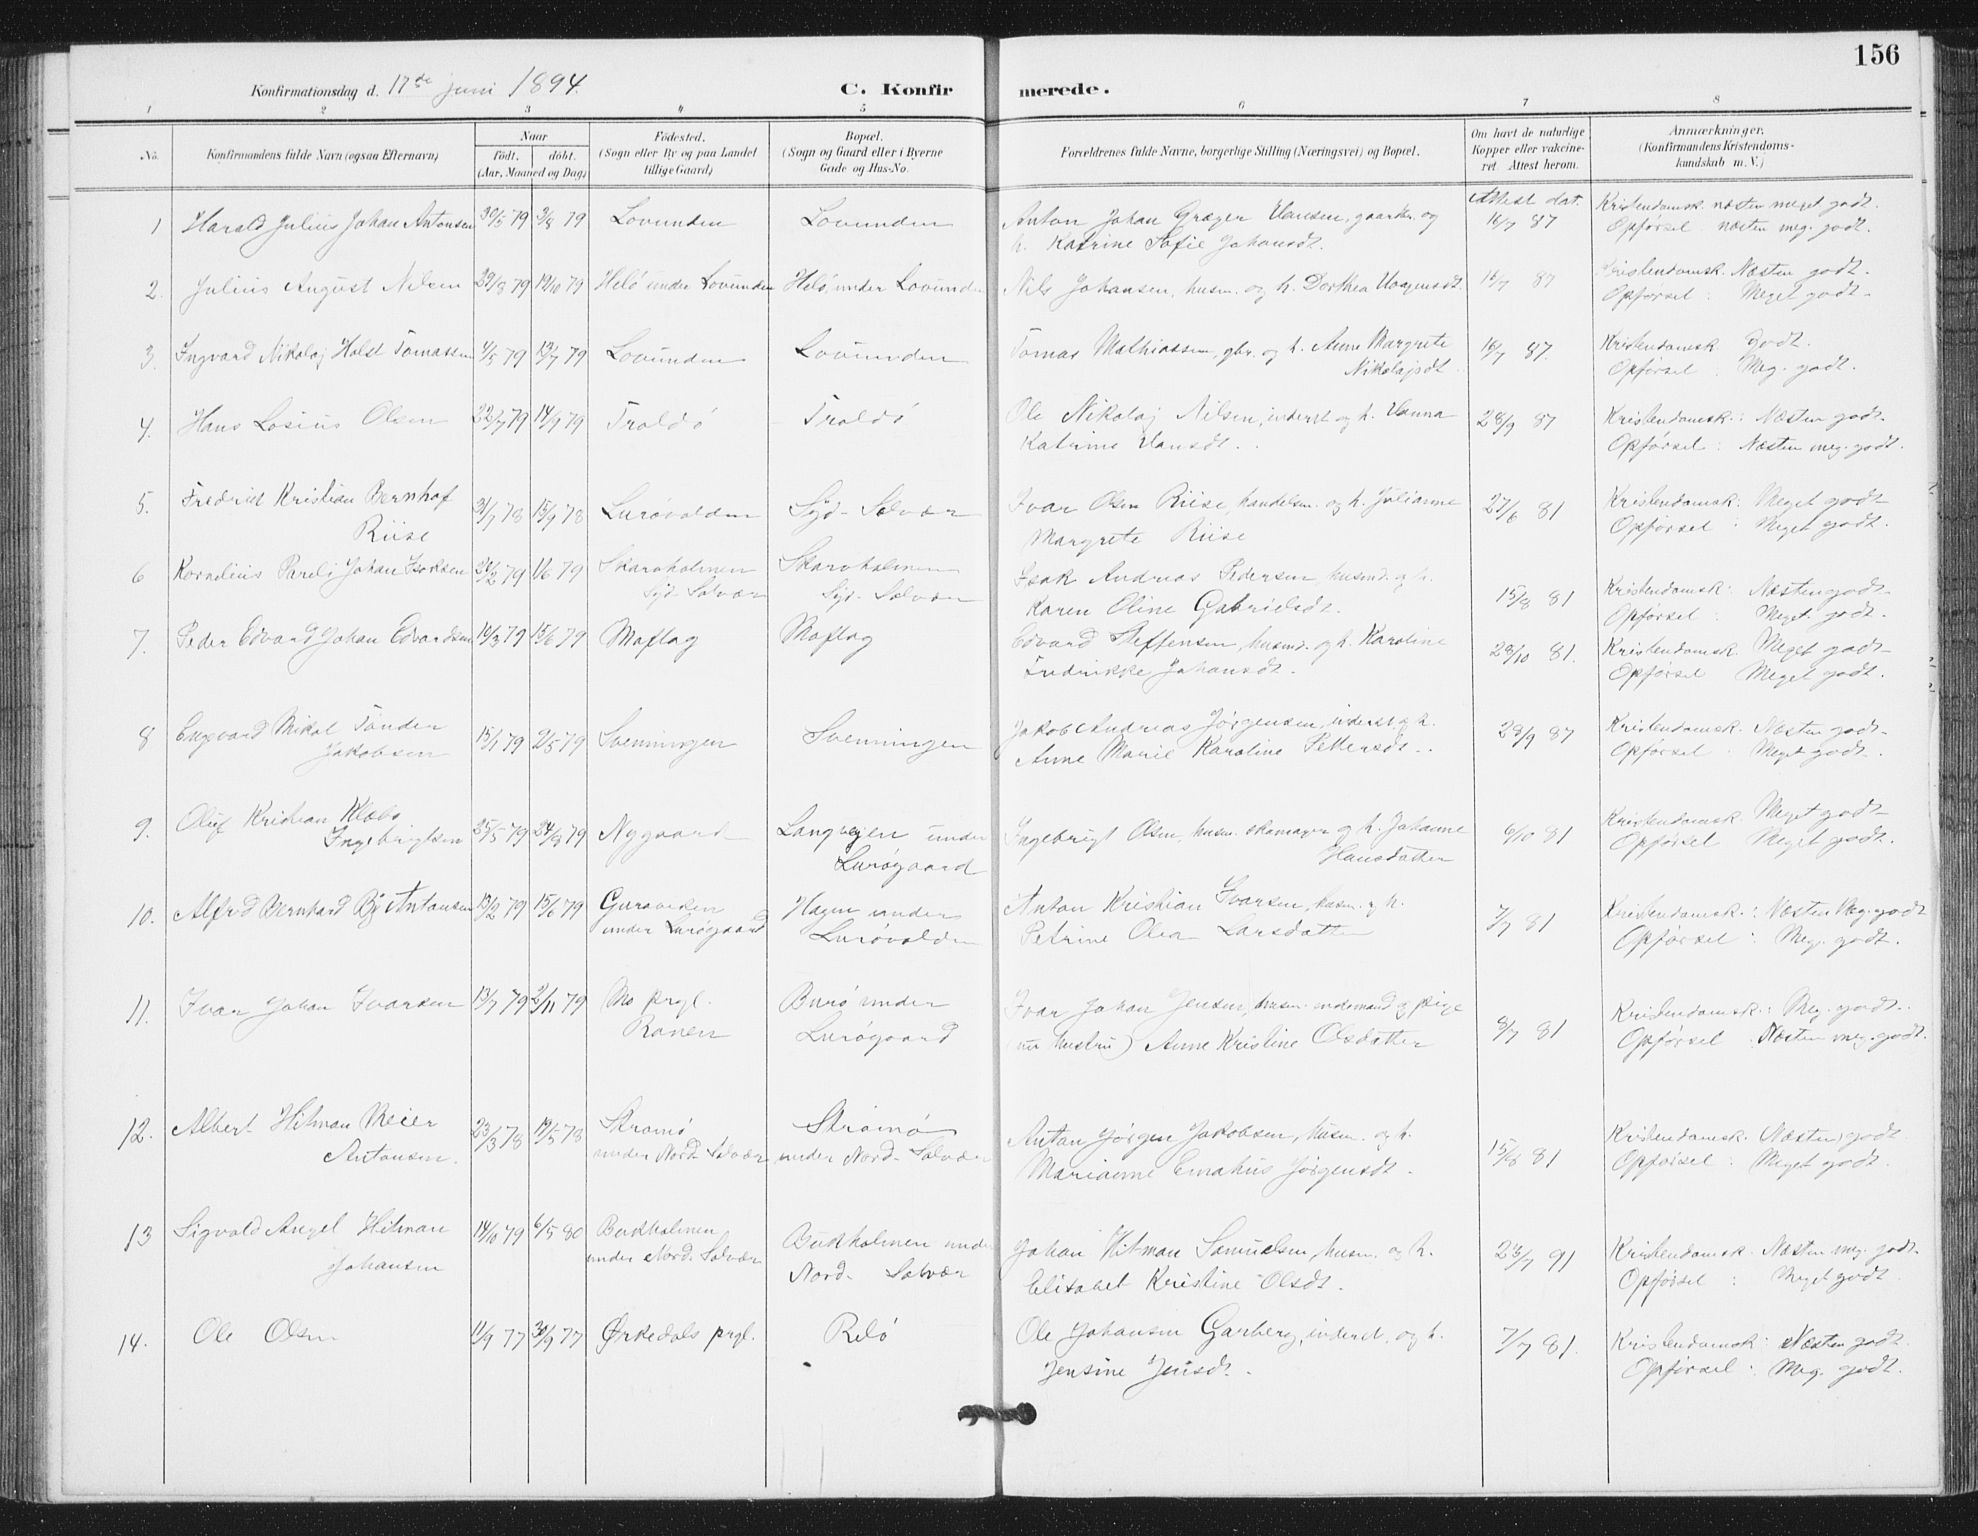 156
Konfirmationsdag d. 17de juni 1894.
C. Konfirmerede.
1 2 3 4 5 6 7 8
No.
Konfirmandens fulde Navn (ogsaa Efternavn)
Naar
födt. döbt.
(Aar, Maaned og Dag)
Födested.
(Sogn eller By og paa Landet tillige Gaard)
Bopæl.
(Sogn og Gaard eller i Byerne Gade og Hus-No.
Forældrenes fulde Navne, borgerlige Stilling (Næringsvei) og Bopæl.
Om havt de naturlige Kopper eller vaccineret. Attest herom.
Anmærkninger.
(Konfirmandens Kristendomskundskab m. V.)
Attest dat.
1 Harald Julius Johan Antonsen 30/5 79 3/8 79 Lovunden Lovunden Anton Johan Græger Hansen, gaardbr. og 16/7 87 Kristendomsk. næsten meget godt.
h. Katrine Sofie Johansdt. Opførsel næsten meg. godt.
2. Julius August Nilsen 29/8 79 19/10 79 Helö under Lovunden Helö under Lovunden Nils Johansen, husm. og h. Dorthea 16/7 87 Kristendomsk. Næsten godt.
Opførsel: Meget godt.
3. Ingvard Nikolaj Holst Tomassen 4/5 79 13/7 79 Lovunden Lovunden Tomas Mathiassen, gbr. og h. Anne Margrete 16/7 87. Kristendomsk. Godt.
Nikolajsdt. Opførsel: Meg. godt.
4. Hans Losius Olsen 22/7 79 14/9 79 Troldö Troldö Ole Nikolaj Nilsen, inderst og h. Hanna 28/9 87 Kristendomsk.: Næsten godt.
Katrine Hansdt. Opførsel: Næsten meg. godt.
5. Fredrick Kristian Bernhof 31/7 78 15/9 78 Lurövolden Syd-Solvær Ivar Olsen Riise, handelsm. og h. Julianne 27/6 81 Kristendomsk: Meget godt
Riise Margrete Riise Opførsel: Meget godt.
6 Kornelius Pareli Johan Isaksen 1/6 79 Skarvholmen Skarvholmen Isak Andreas Pedersen husmd. og h. 15/8 81 Kristendomsk: Næsten godt
Syd-Solvær Syd-Solvær Karen Oline Gabrielsdt. Opførsel: Meget godt.
7. Peder Edvard Johan Edvardsen 14/3 79 15/6 79 Moflag Moflag Edvard Steffensen, husmd. og h. Karoline 28/10 81. Kristendomsk. Meget godt
Fredrikke Johansdt. Opførsel Meget godt.
8 Engvard Mikal Tönder 15/1 79 2/5 79 Svenningen Svenningen Jakob Andreas Jörgensen, inderst og h. 28/9 87 Kristendomsk. Næsten godt.
Jakobsen Anne Marie Karoline Pettersdt. Opførsel Meget godt.
9. Oluf Kristian Klæbo 25/5 79 24/8 79 Nygaard Langvejen under Ingebrigt Olsen, husm. skomager og h. Johanne 6/10 81 Kristendomsk. Meget godt
Ingebrigtsen Lurögaard Hansdatter Opførsel Meget godt.
10. Alfred Bernhard By Antonsen 13/2 79 15/6 79 under Lurögaard Hagen under Lurövolden Anton Kristian Ivarsen, husm. og h. 7/7 81 Kristendomsk.: Næsten Meg. godt
Petrine Olea Larsdatter Opførsel: Meg. godt.
11. Ivar Johan Ivarsen 13/7 79 2/11 79 Mo prgl. Burö under Ivar Johan Jensen, og pige 8/7 81 Kristendomsk.: Meg. godt.
Ranen Lurögaard (nu hustru) Anne Kristine Olsdatter Opførsel Næsten meg. godt.
12. Albert Hitman Meier 23/3 78 19/5 78 Strömö Strömö Anton Jörgen Jakobsen, husm. og h. 15/8 81 Kristendomsk. Næsten godt
Antonsen. under Nord-Solvær under Nord-Solvær Marianne Jörgensdt. Opførsel: Meget godt.
13 Sigvald Angel Hitman 14/10 79 6/5 80 Bukholmen Bukholmen under Johan Hitman Samuelsen, husm. og h. 23/7 91 Kristendomsk. Næsten meg. godt.
Johansen under Nord. Solvær Nord-Solvær Elisabet Kristine Olsdt. Opførsel: Meget godt.
14. Ole Olsen 11/9 77 30/9 77 Ørkedals prgl. Relö Ole Johansen Garberg, inderst, og h. 7/7 81. Kristendomsk: Næsten godt.
Jensine Jensdt. Opførsel: Meg. godt.